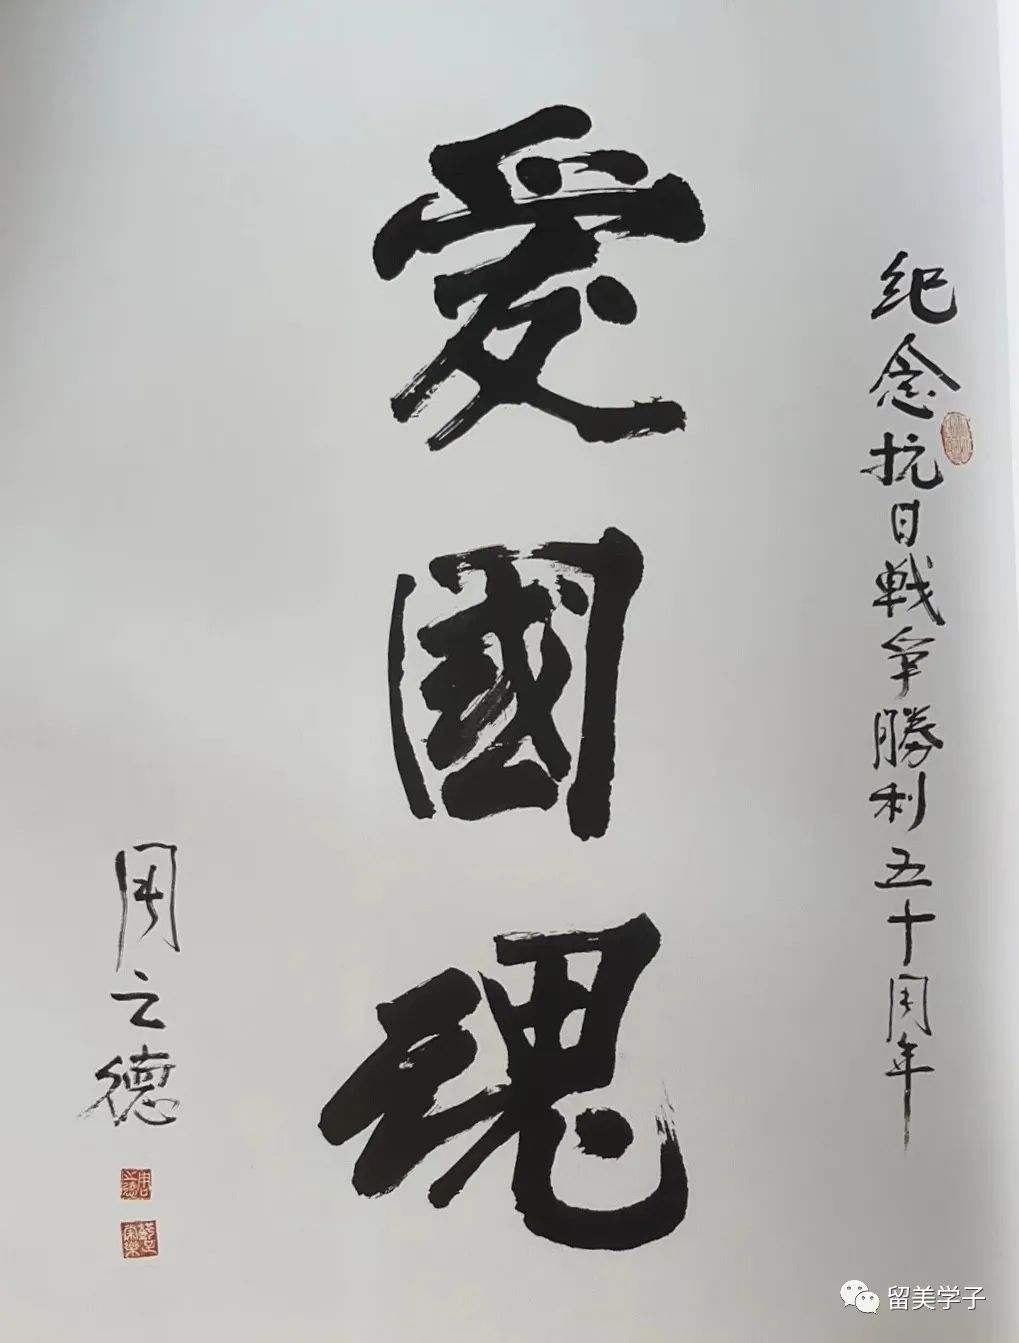 紀念抗日戦争勝利五十周年
愛國魂
周之德
周之德
留美学子